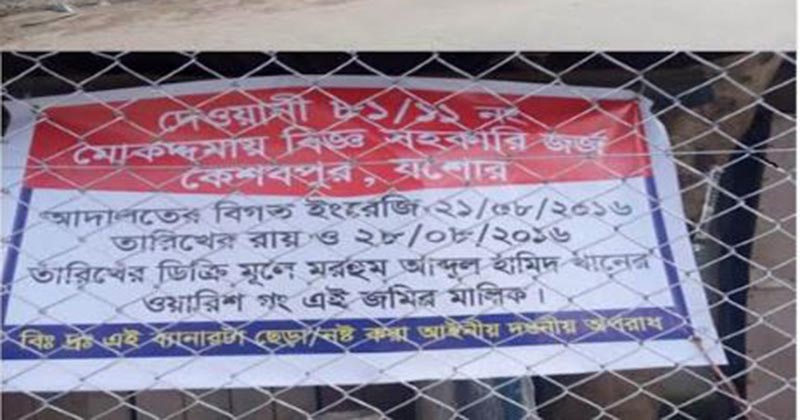 দেওয়ানী ৮১/১১ নং
মোকদ্দমায় বিজ্ঞ সহকারি জর্জ
কেশবপুর, যশোর
আদালতের বিগত ইংরেজি ২১/০৮/২০১৬
তারিখের রায় ও ২৮/০৮/২০১৬
তারিখের ডিক্রি মূলে মরহুম আব্দুল হামিদ খানের
ওয়ারিশ গং এই জমির মালিক।
বিঃ দ্রঃ এই ব্যানারটা ছেড়া/নষ্ট করা আইনীয় দণ্ডনীয় অপরাধ